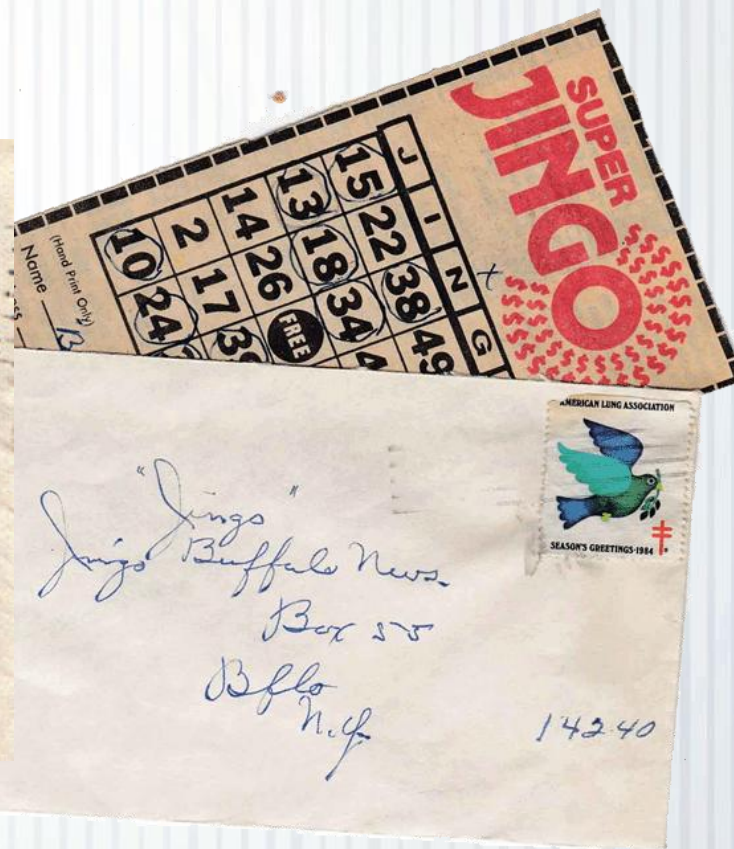 SUPER
JINGO
J I N G
15 22 38 49
13 18 34
14 26 FREE
2 17
10 24
(Hand Print Only)
Name
AMERICAN LUNG ASSOCIATION
SEASON'S GREETINGS·1984
"Jingo"
Jingo Buffalo News.
Box 55
Bflo
N.Y. 14240